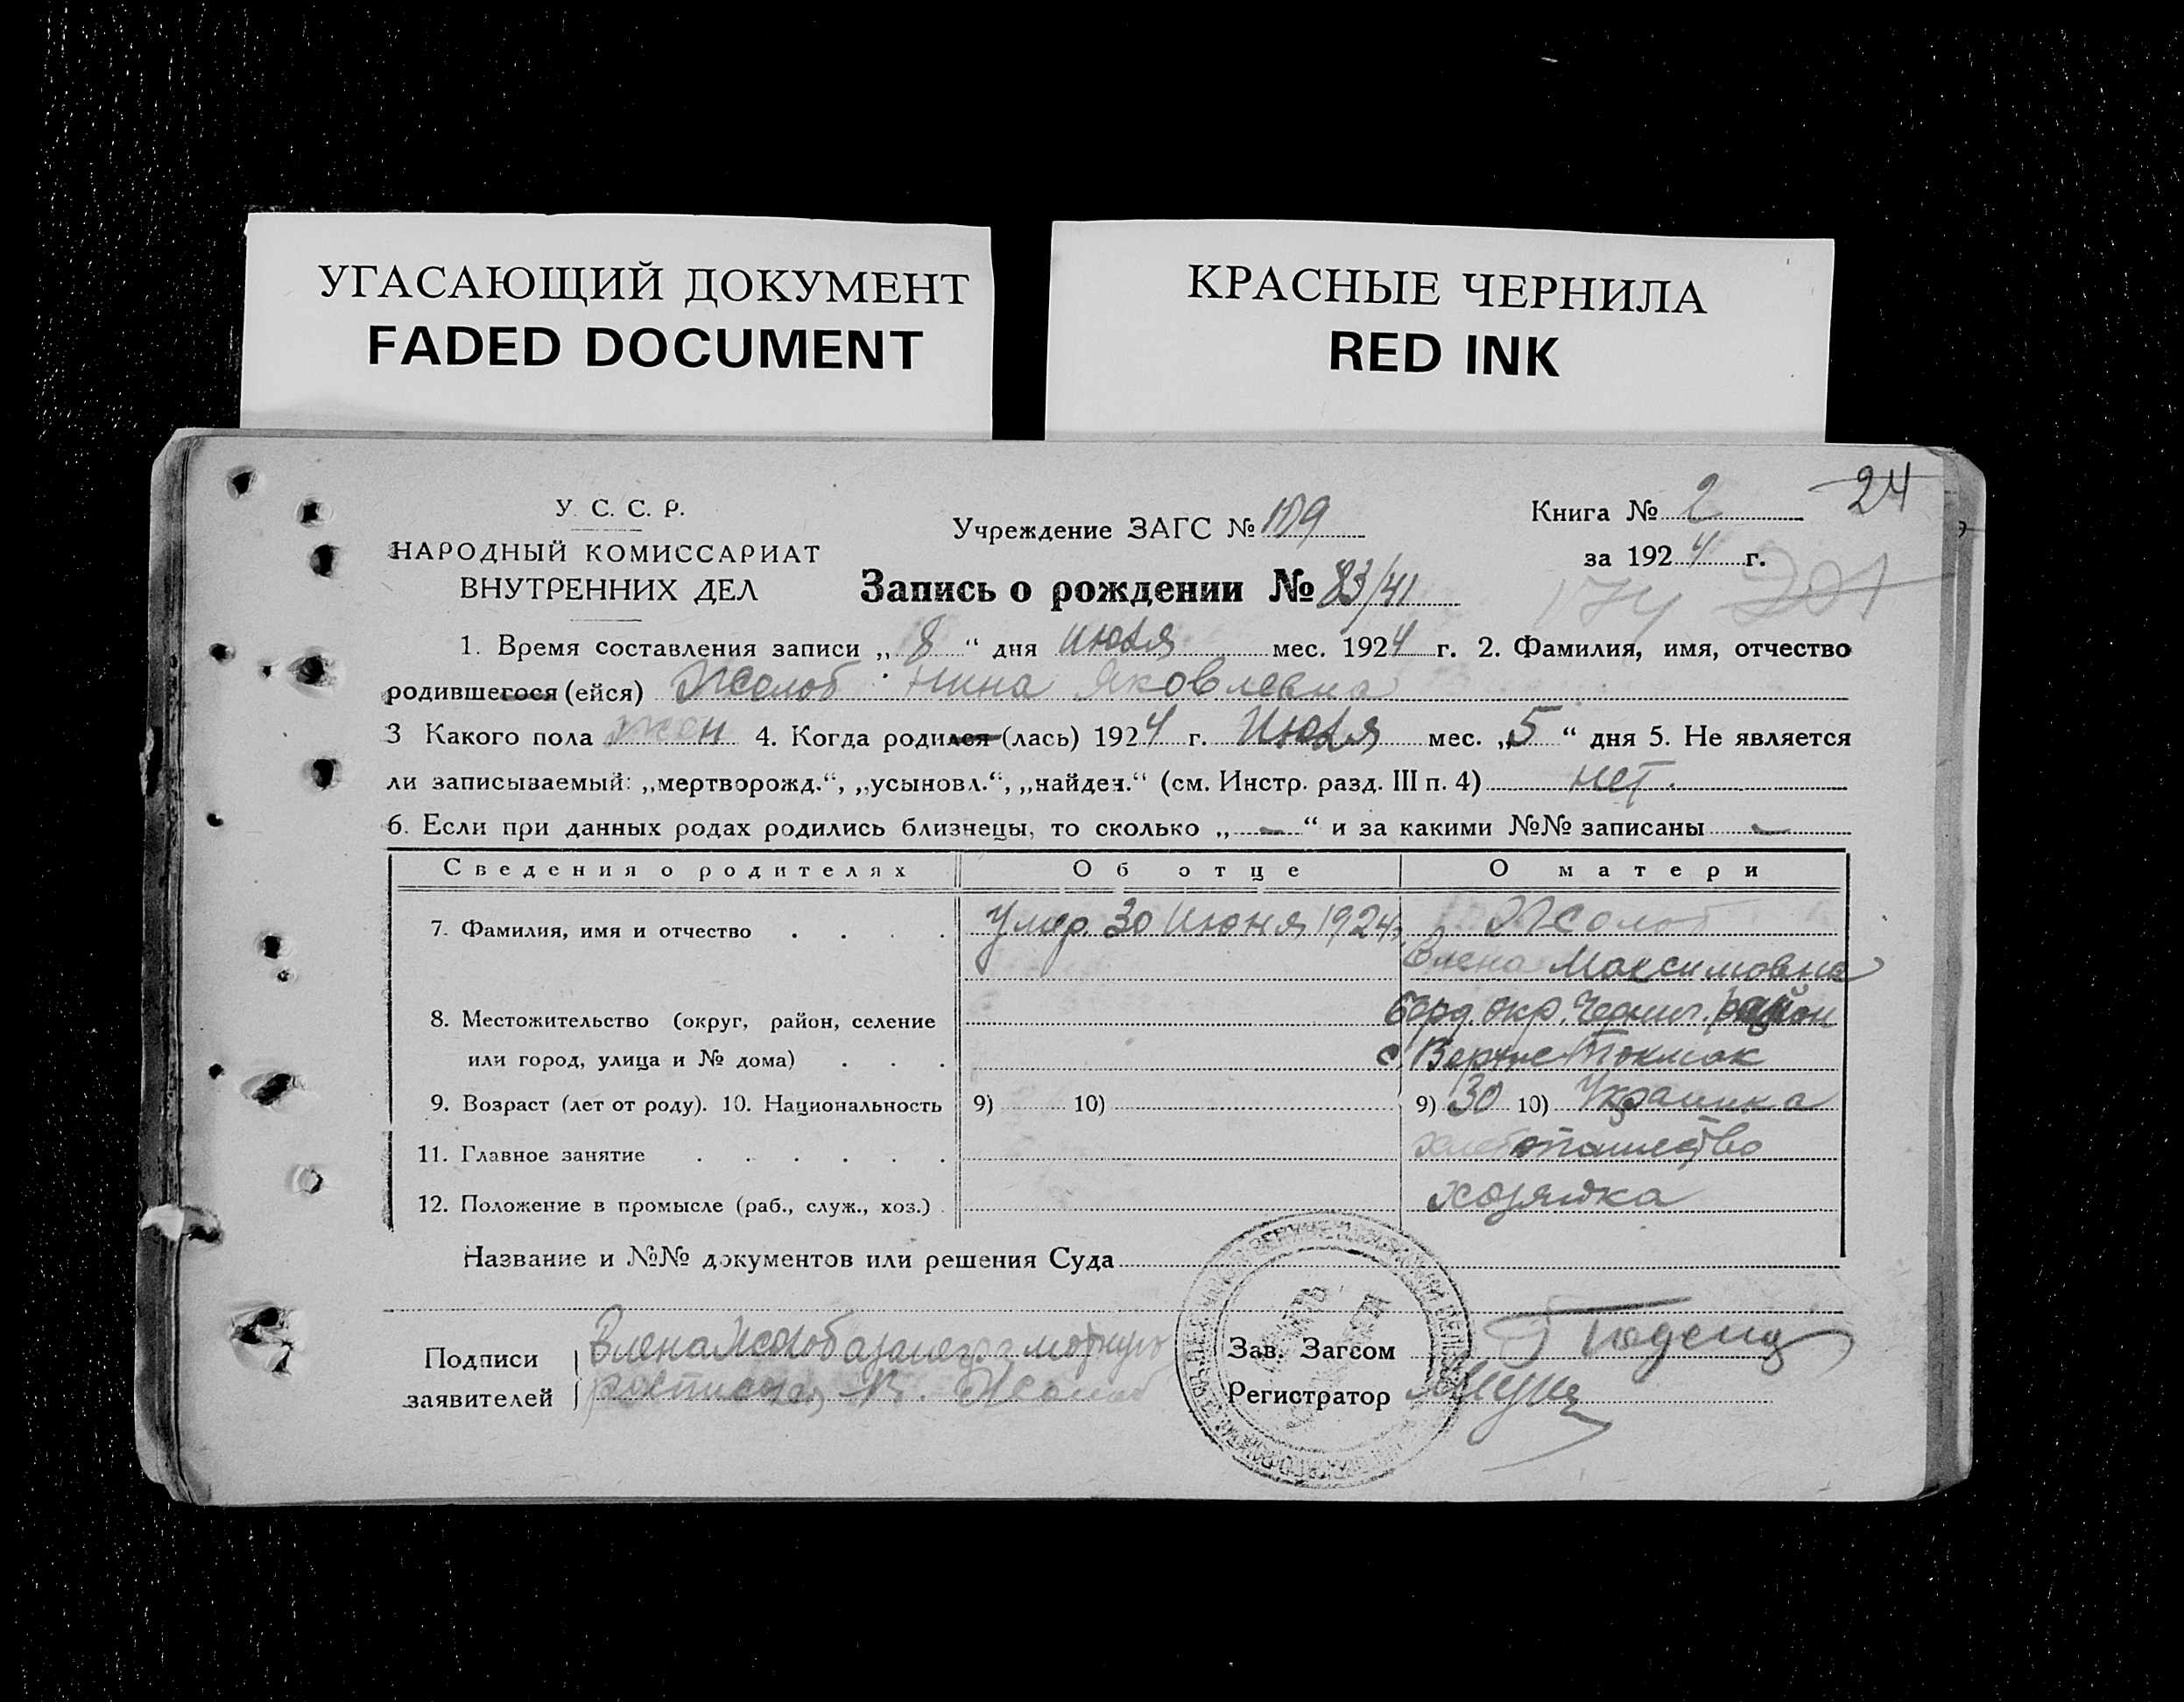 УГАСАЮЩИЙ ДОКУМЕНТ
FADED DOCUMENT
КРАСНЫЕ ЧЕРНИЛА
RED INK
У. С. С. Р.
НАРОДНЫЙ КОМИССАРИАТ
ВНУТРЕННИХ ДЕЛ
Учреждение ЗАГС №
Книга № 2
24
за 1924 г.
174 201
Запись о рождении № 83/41
1. Время составления записи „ 8 “ дня июля мес. 1924 г. 2. Фамилия, имя, отчество
родившегося (ейся) Жолоб Нина Яковлевна
3 Какого пола жен 4. Когда родился (лась) 1924 г. Июля мес. „5“ дня 5. Не является
ли записываемый: „мертворожд.“, „усыновл.“, „найден.“ (см. Инстр. разд. III п. 4) нет.
6. Если при данных родах родились близнецы, то сколько „ — “ и за какими №№ записаны —
Сведения о родителях Об отце О матери
7. Фамилия, имя и отчество . . . . Умер. 30 Июня 1924 г. Жолоб
Елена Максимовна
8. Местожительство (округ, район, селение Берд. окр. Черниг. район
или город, улица и № дома) . . . с. Верхне Токмак
9. Возраст (лет от роду). 10. Национальность 9) 10) 9) 30 10) Украинка
11. Главное занятие . . . . . . хлебопашество
12. Положение в промысле (раб., служ., хоз.) . хозяйка
Название и №№ документов или решения Суда
Подписи заявителей
Елена Жолоб а за неграмотную
росписался В. Жолоб
Зав. Загсом
Регистратор